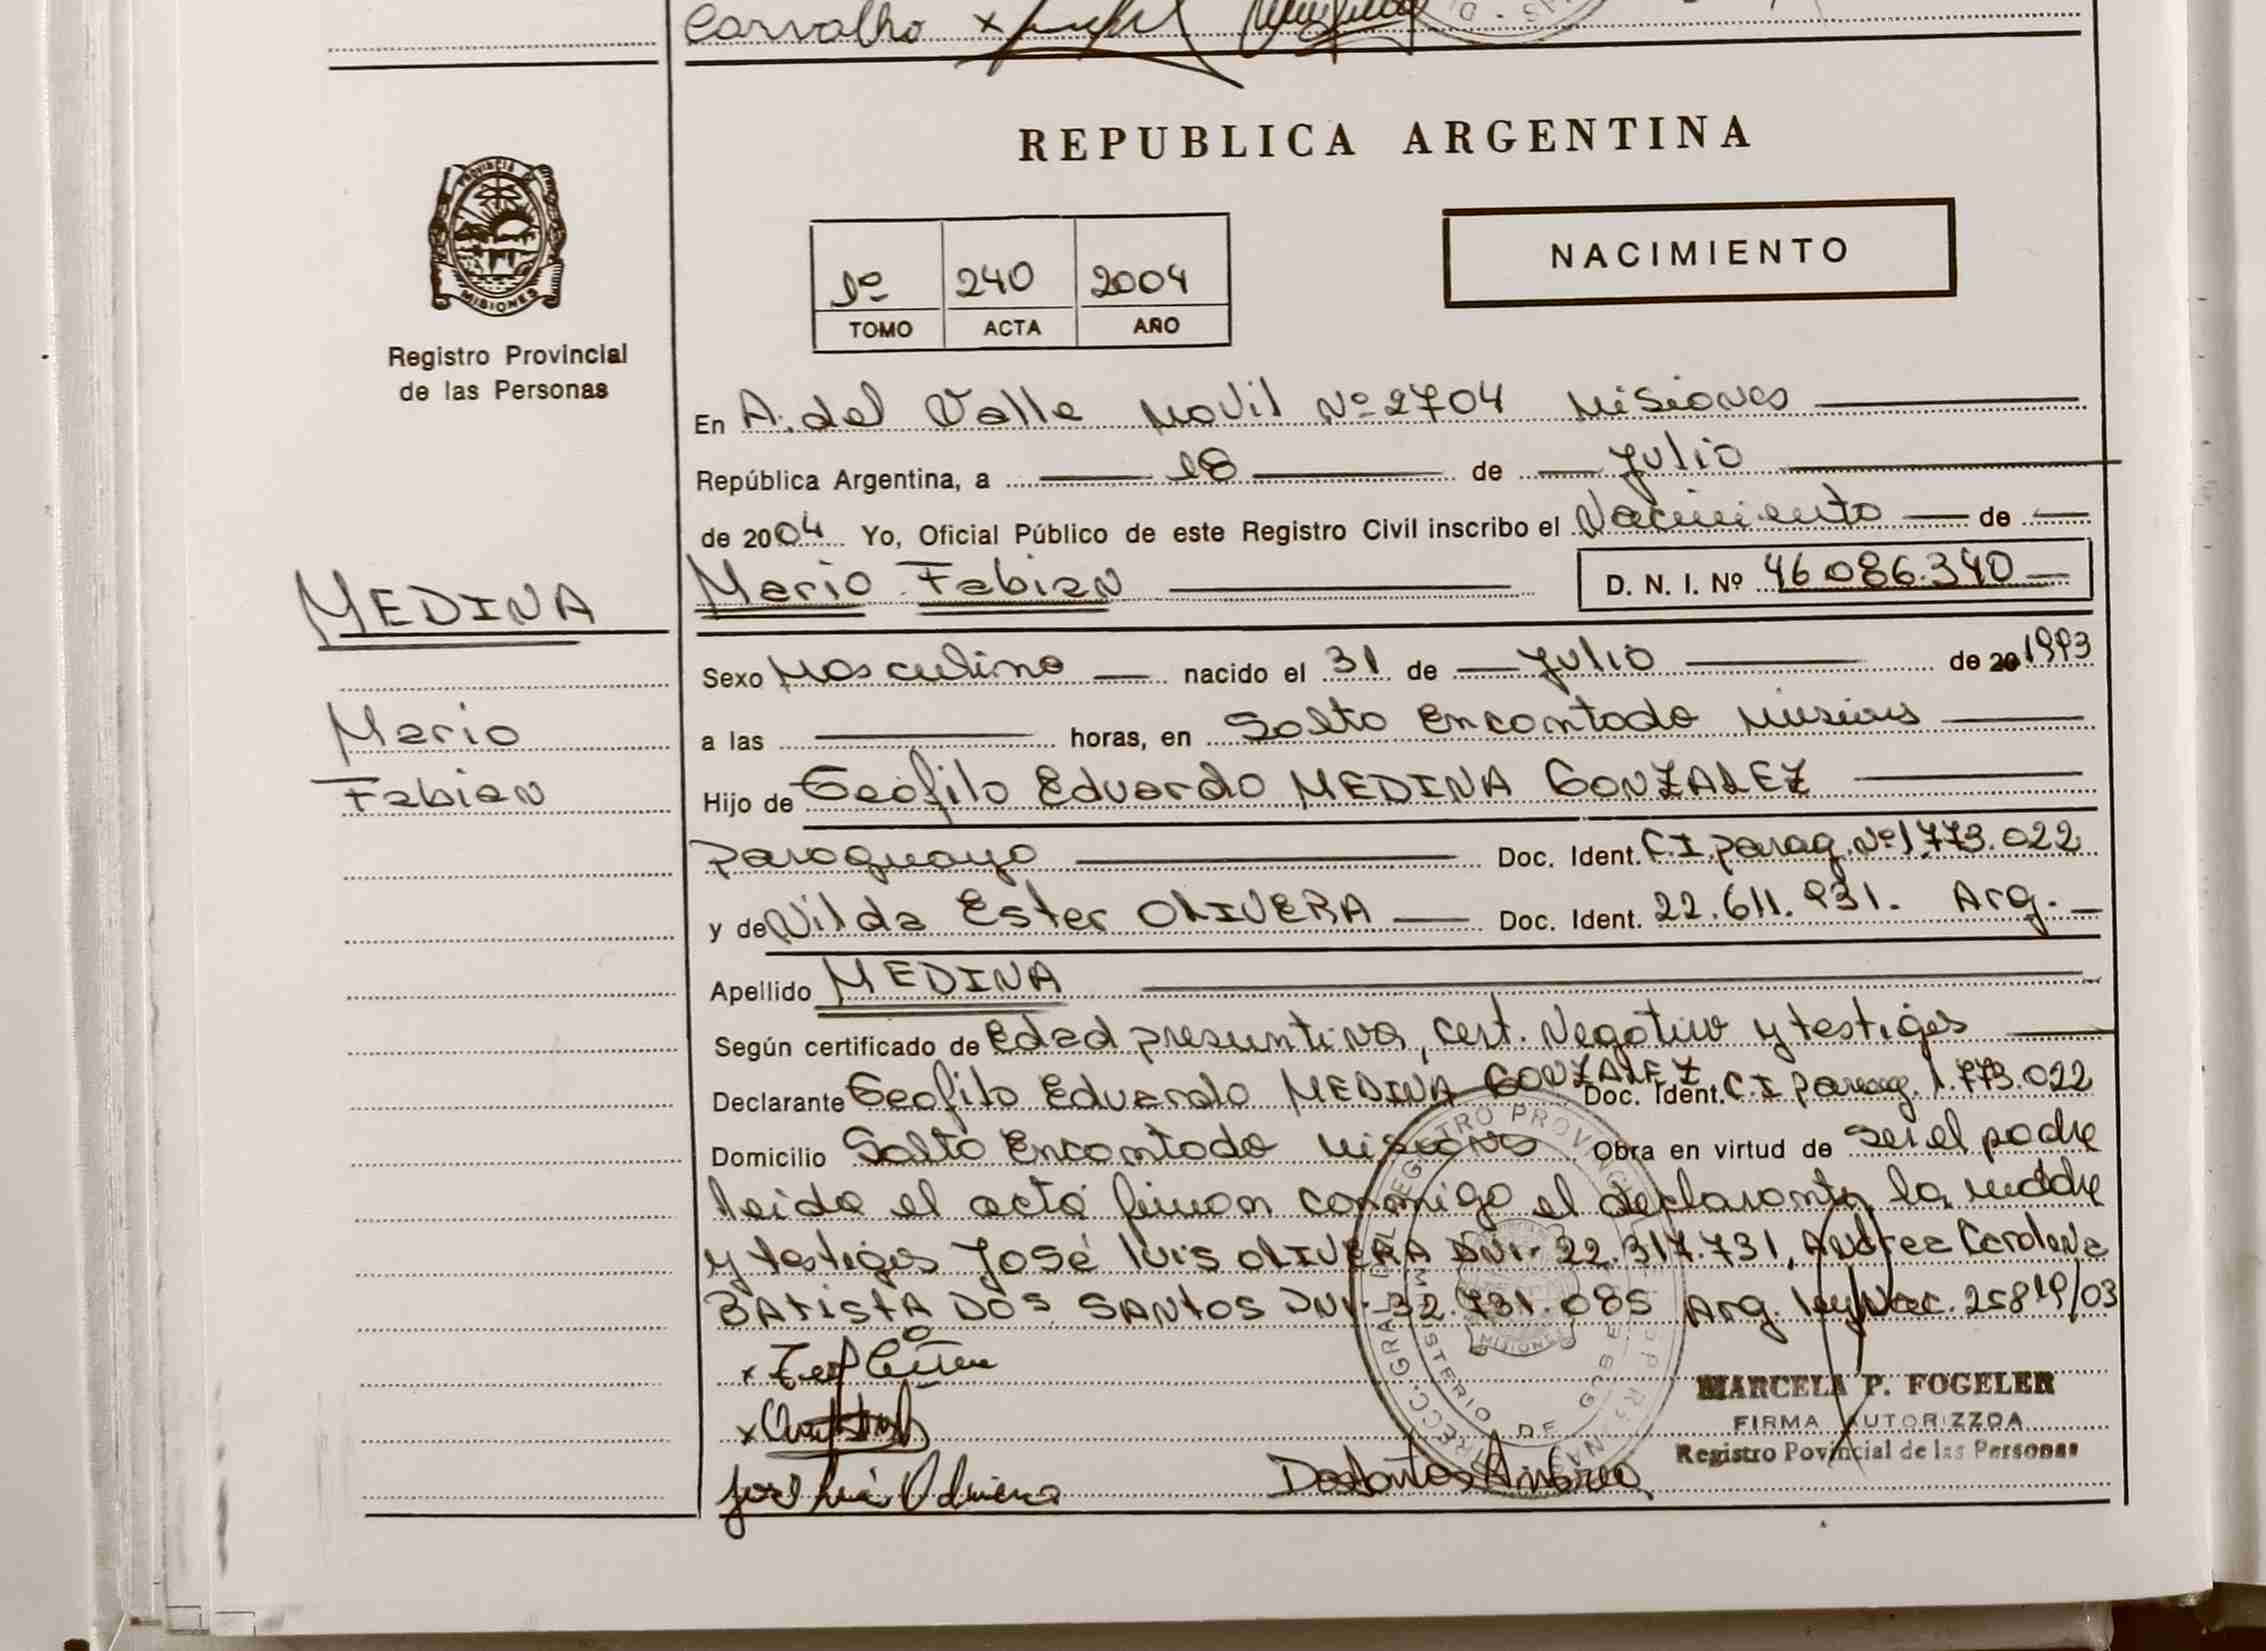 Carvalho x
REPUBLICA ARGENTINA
PROVINCIA DE
MISIONES
Registro Provincial
de las Personas
NACIMIENTO
1º 240 2004
TOMO ACTA AÑO
En A. del Valle Movil Nº 2704 Misiones
República Argentina, a 18 de Julio
de 2004 Yo, Oficial Público de este Registro Civil inscribo el Nacimiento de
MEDINA
Mario Fabian D. N. I. Nº 46.086.340
Sexo Masculino nacido el 31 de Julio de 20 1993
Mario
a las horas, en Salto Encantado Misiones
Fabian
Hijo de Teófilo Eduardo MEDINA GONZALEZ
paraguayo Doc. Ident. C.I. parag. Nº 1.773.022
y de Nilda Ester OLIVERA Doc. Ident. 22.611.931. Arg.
Apellido MEDINA
Según certificado de Edad presuntiva, cert. Negativo y testigos
Declarante Teofilo Eduardo MEDINA GONZALEZ Doc. Ident. C.I parag. 1.773.022
Domicilio Salto Encantado Misiones Obra en virtud de ser el padre
leida el acta firman conmigo el declarante, la madre
y testigos José Luis OLIVERA DNI. 22.317.731, Andrea Carolina
BATISTA DOS SANTOS DNI. 32.731.085 Arg. ley Nac. 25819/03
MARCELA P. FOGELER
FIRMA AUTORIZZDA
Registro Povincial de las Personas
José Luis Olivera Dosantos Andrea